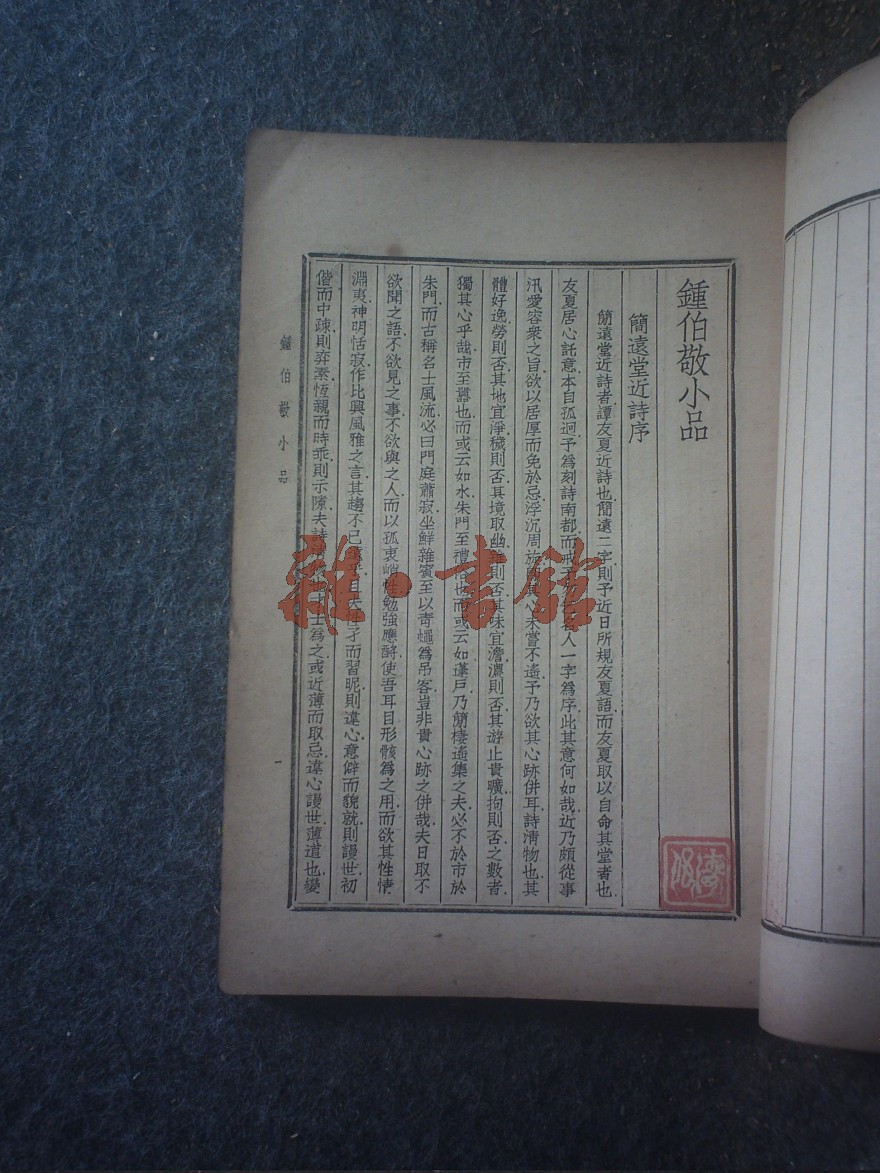 鍾伯敬小品
簡遠堂近詩序
簡遠堂近詩者譚友夏近詩也簡遠二字則予近日所規友夏語而友夏取以自命其堂者也
友夏居心託意本自孤迥予為刻詩南都而戒予勿 人一字為序此其意何如哉近乃頗從事
汎愛容衆之旨欲以居厚而免於忌浮沉周旋 其心未嘗不遙予乃欲其心跡併耳詩清物也其
體好逸勞則否其地宜淨穢則否其境取幽雜則否其味宜澹濃則否其遊止貴曠拘則否之數者
獨其心乎哉市至囂也而或云如水朱門至禮 也而或云如蓬戶乃簡棲遙集之夫必不於市於
朱門而古稱名士風流必曰門庭蕭寂坐鮮雜賓至以青蠅為吊客豈非貴心跡之併哉夫日取不
欲聞之語不欲見之事不欲與之人而以孤衷峭性勉強應酬使吾耳目形骸為之用而欲其性情
淵夷神明恬寂作比興風雅之言其趨不已遠乎且夫性孑而習昵則違心意僻而貌就則謾世初
偕而中疎則弃素恆親而時乖則示隙夫詩 士為之或近薄而取忌違心謾世薄道也變
鍾伯敬小品
一
雜·書館